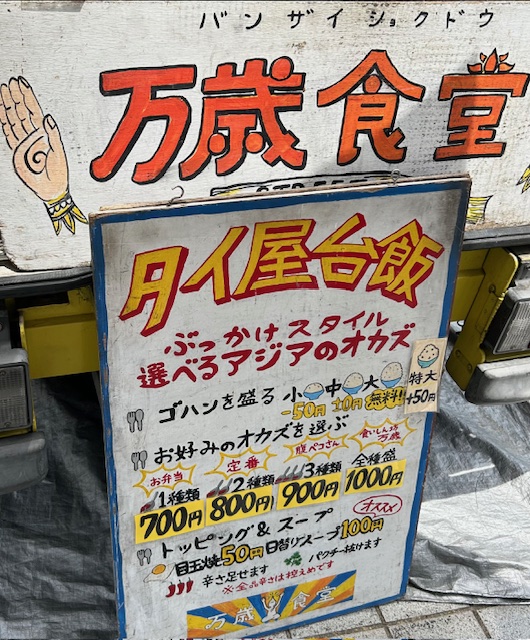 バンザイショクドウ
万歳食堂
タイ屋台飯
ぶっかけスタイル
選べるアジアのオカズ
ゴハンを盛る 小 中 大 特大
-50円 ±0円 無料!! +50円
お好みのオカズを選ぶ
お弁当 定番 腹ペコさん 食いしん坊万歳
1種類 2種類 3種類 全種盛
700円 800円 900円 1000円
トッピング&スープ オススメ
目玉焼50円 日替りスープ100円
辛さ足せます パクチー抜けます
※全品辛さは控えめです
万歳食堂